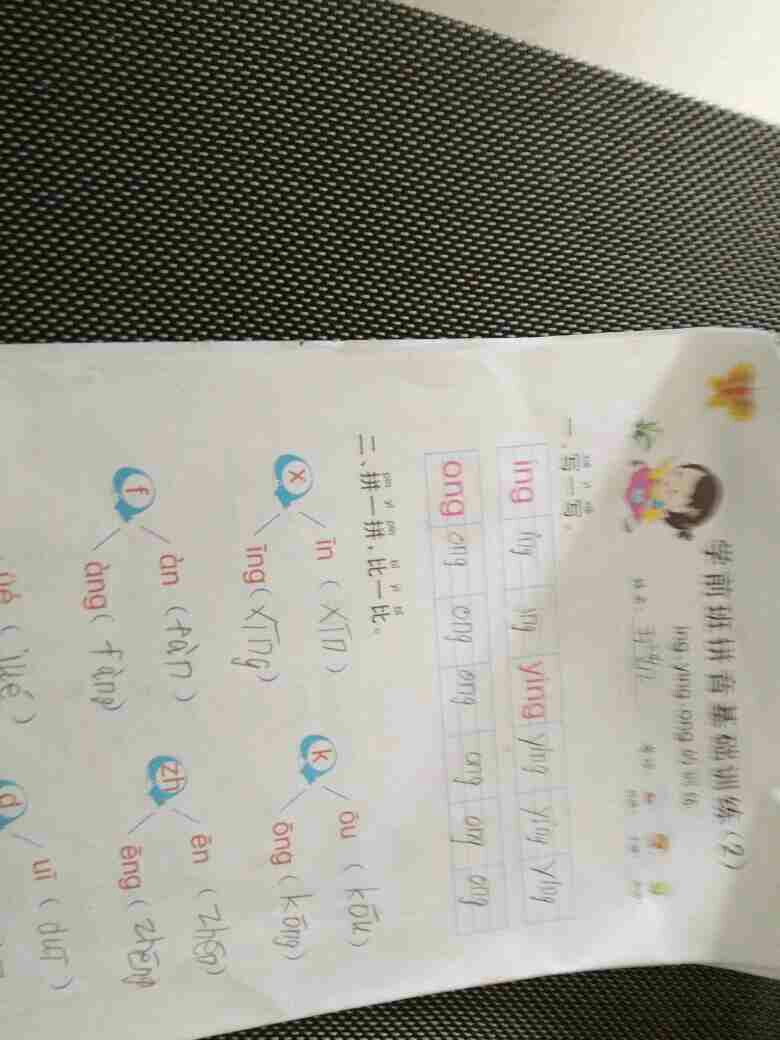 学前班拼音基础训练(2)
ing ying ong的训练
姓名:
一、写一写。
ing ing ing ying ying ying ying
ong ong ong ong ong ong ong
pīn yì pīn bǐ yì bǐ
二、拼一拼,比一比。
x īn ( xīn )
īng ( xīng )
k ǒu ( kǒu )
ōng ( kōng )
f àn ( fàn )
àng ( fàng )
zh ēn ( zhēn )
ēng ( zhēng
d uī ( duī )